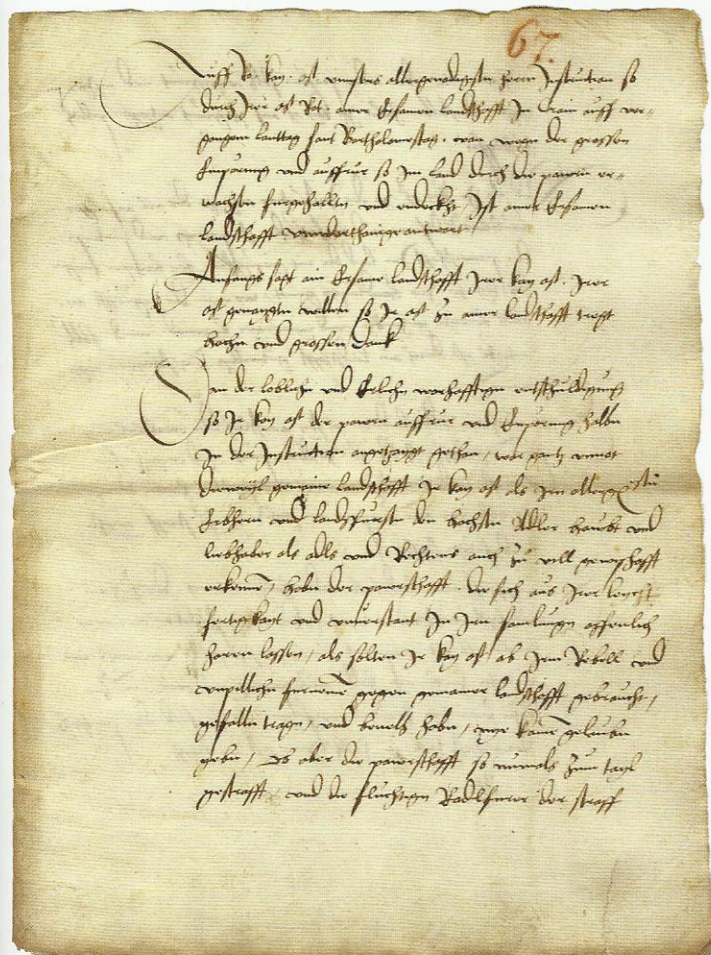 67.
Auff Ro. kay. Mt. unnsers allergenedigisten herrn Instruction so
durch Irer Mt Ret. ainer Ersamen landschafft In Crain auff ver-
gangem lanttag sant Bartholomestag. von wegen der grossen
Emporung und auffrur so Im land durch die pawrn er-
wachsen furgehallten und endeckht Ist ainer Ersamen
landschafft
Anfangs sagt ain Ersame landschafft Irer kay Mt. Irer
Mt genaigten willen so Ir Mt zu ainer landschafft tregt
hochen und grossen danck
Von der loblichen und Erlichen warhafftigen entschuldigung
so Ir kay Mt der pawrn auffrur und Emporung halben
In der Instruction angezaigt gethan, war gantz unnot
dieweyl gemaine landschafft Ir kay Mt als Irn
Erbherrn und landsfursten den hochsten Adler haubt und
liebhaber als adls und Rechtens auch zu vill
erkennen, haben der pawrschafft. die sich aus Irer leycht
fertigkayt und unverstant In Irn samlungen offenlich
horen lassen, als solten Ir kay Mt ab Irm Rebell und
unpillichen furnemen gegen gemainer landschafft gebraucht,
gefallen tragen, und bevelh haben, nye kainen gelauben
geben, Ob aber die pawrschafft so numals zum tayl
gestrafft, und die fluchtigen Radlfurer der straff